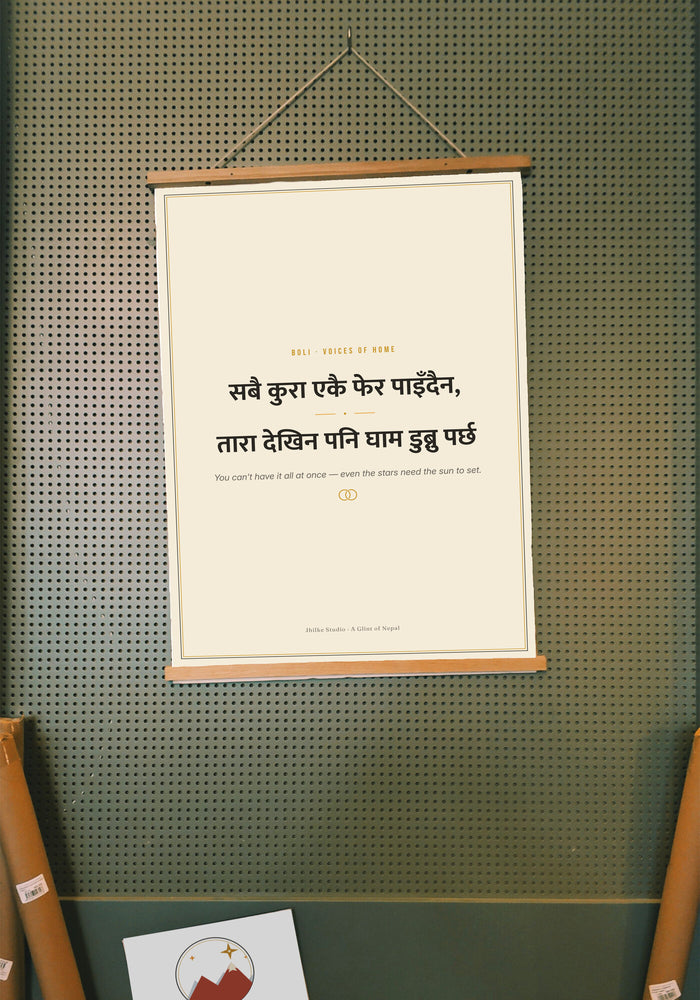 BOLI · VOICES OF HOME
सबै कुरा एकै फेर पाइँदैन,
तारा देखिन पनि घाम डुब्नु पर्छ
You can't have it all at once — even the stars need the sun to set.
Jhilke Studio · A Glint of Nepal